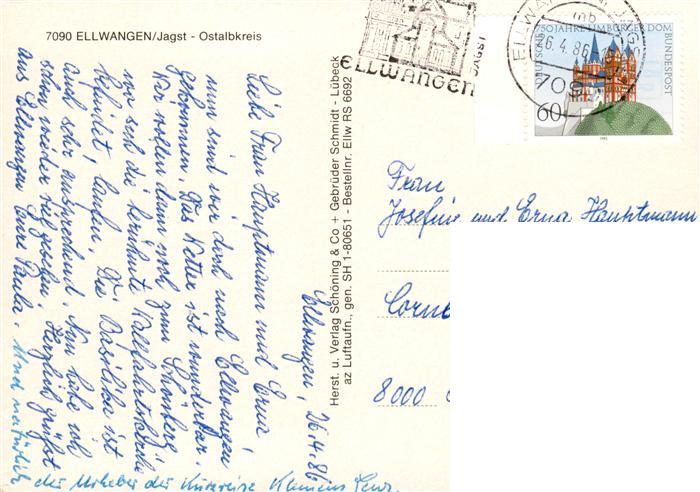 7090 ELLWANGEN/Jagst - Ostalbkreis
Ellwangen, 26.4.86
Liebe Frau Hauptmann und Erna
nun sind wir doch nach Ellwangen
gekommen. Das Wetter ist wunderbar.
Wir wollen dann noch zum Schönberg
wo sich die berühmte Wallfahrtskirche
befindet, laufen. Die Basilika ist
auch sehr ansprechend. Nun habe ich
schon wieder viel gesehen. Herzlich grüßt
aus Ellwangen Eure Paula. Und natürlich
der Urheber der Kurzreise Klemens
Herst. u. Verlag Schöning & Co + Gebrüder Schmidt - Lübeck
az Luftaufn., gen. SH 1-80651 - Bestellnr. Ellw RS 6692
JAGST
ELLWANGEN
ELLWANGEN
26.4.86
709
750 JAHRE LIMBURGER DOM
DEUTSCHE BUNDESPOST
60
Frau
Josefine und Erna Hauptmann
8000